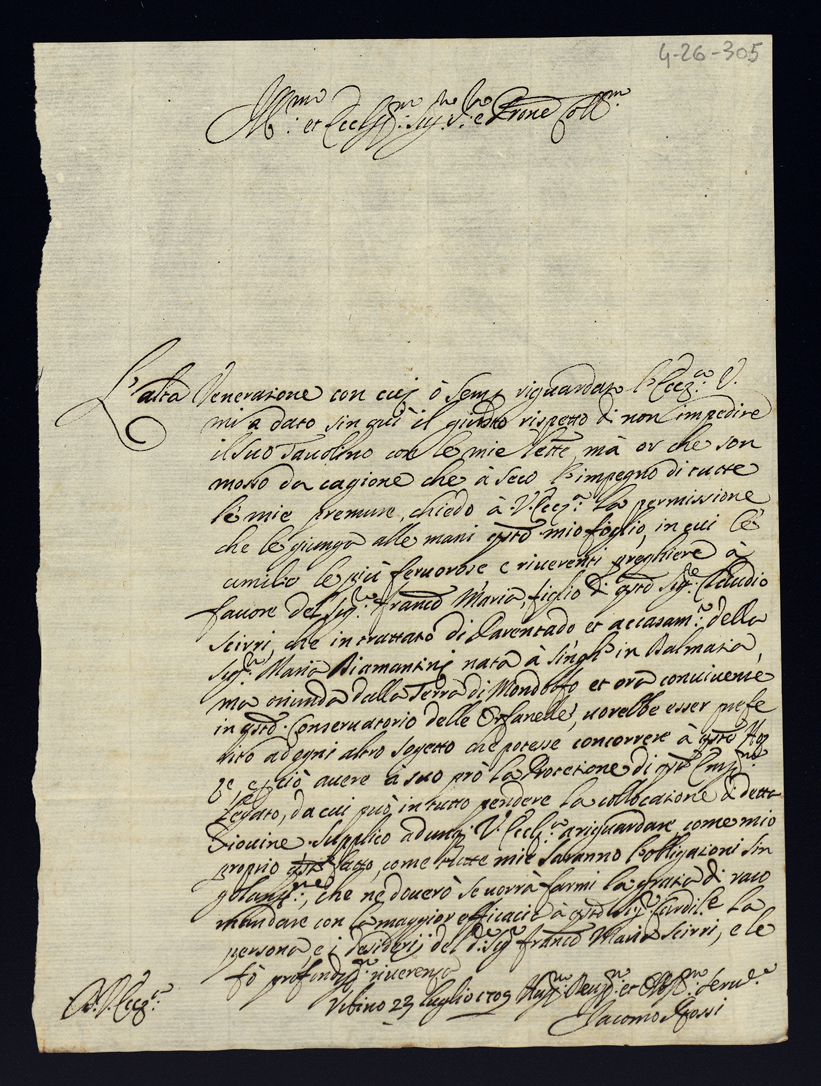 4-26-305
Ill.mo et Ecc.mo Sig.r Sig.r e Prone Coll.mo
L'alta Venerazione con cui ò semp. riguardato l'Ecc.za V.
mi a dato sin quì il giusto rispetto di non impedire
il suo Tavolino con le mie lette, mà or che son
mosso da cagione che à seco l'impegno di tutte
le mie premure, chiedo à V. Ecc.za la permissione
che le giunga alle mani qsto mio foglio, in cui le
umilio le più fervorose e riverenti preghiere à
favore del Sig.r Franc.o Maria, figlio di qsto Sig.r Claudio
Scirri, che in trattato di Parentado et accasam.to della
Sig.ra Maria Diamantini nata à in Dalmazia,
ma oriunda dalla Terra di Mondolfo et ora convivente
in qsto Conservatorio delle Orfanelle, vorebbe esser prefe
rito ad ogni altro sogetto che potesse concorrere à qsto
e ciò avere à suo prò la Protezione di qsto Em.mo
Legato, da cui può in tutto pendere la collocazione di detta
Giovine. Supplico adunq. V. Ecc.za a riguardare come mio
proprio fatto, come tutte mie saranno l'obligazioni sin
golariss.e, che ne doverò se vorrà farmi la grazia di raco
mandare con la maggior efficacia à qsto Sig.r Card.le la
persona e i desiderj del d. Sig.r Franc.o Maria Scirri, e le
fò profondiss.a riverenza
D. V. Ecc.za
Urbino 23 Luglio 1709 Um.mo Dev.mo et Obl.mo Serv.re
Giacomo Rossi